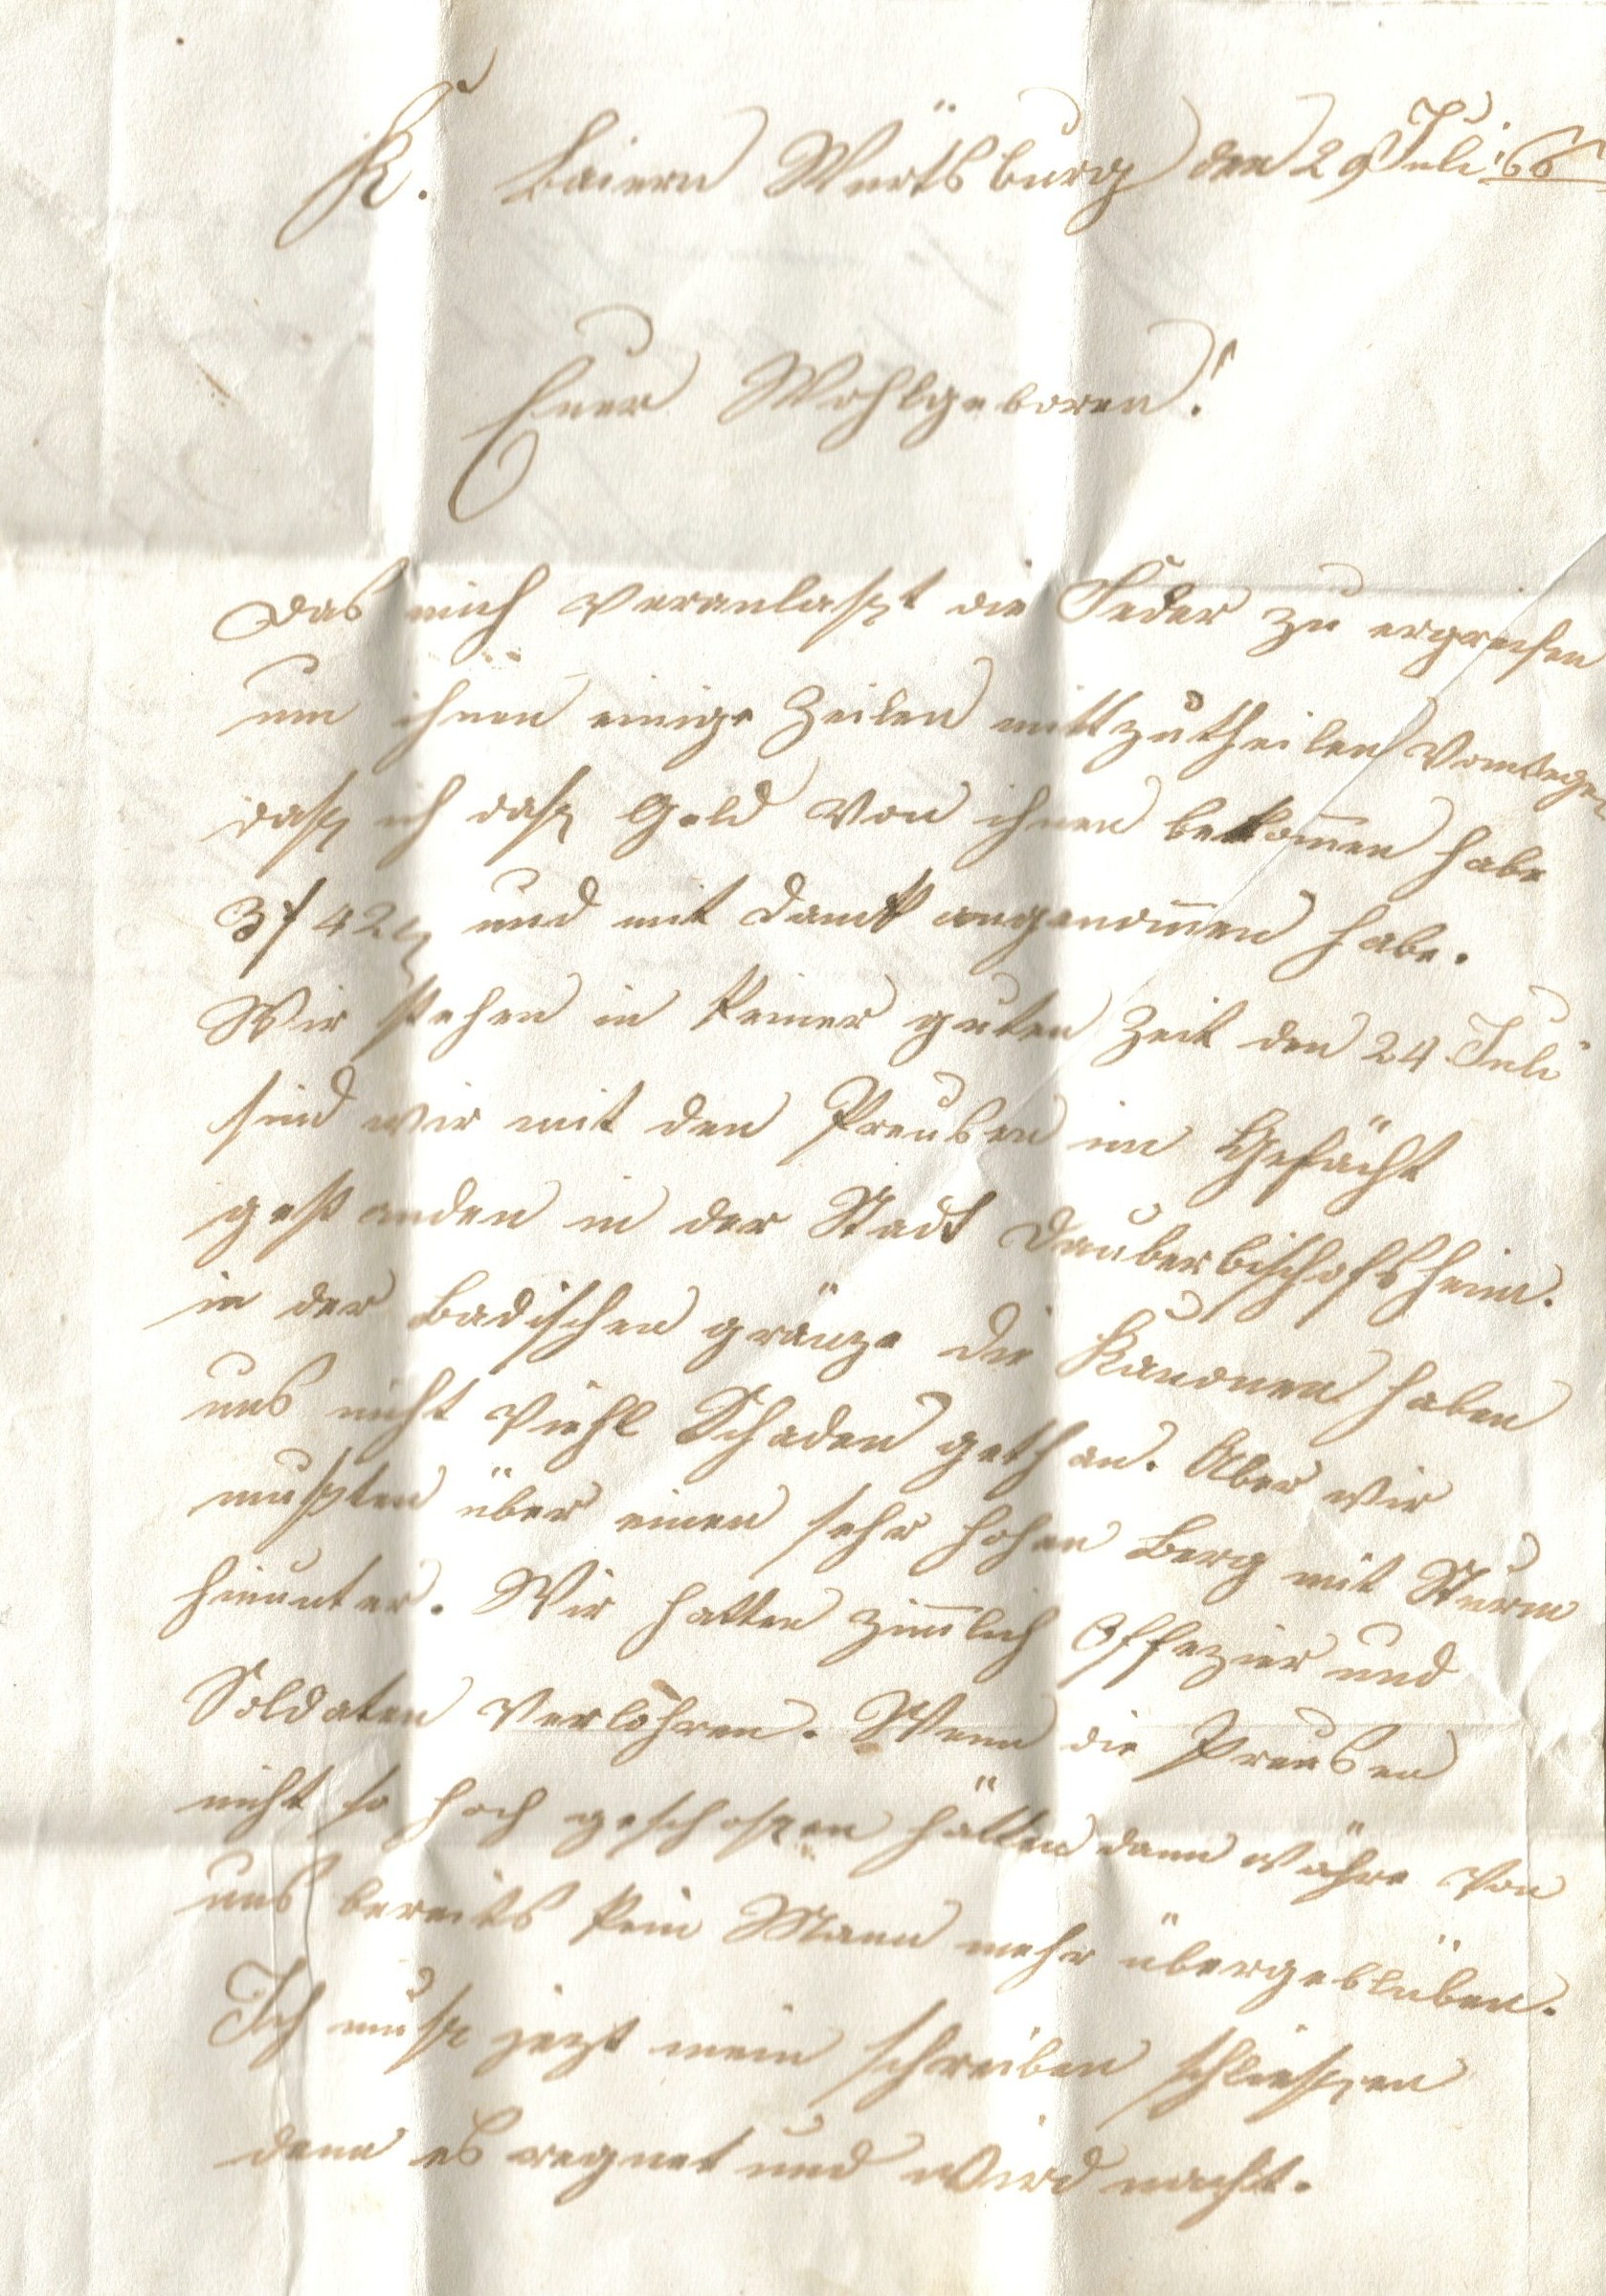 K. Baiern Würtsburg den 29 Juli 66
Euer Wohlgeboren!
Das mich veranlaszt die Feder zu ergreifen
um ihnen einige Zeilen mittzutheilen
dasz ich dasz Geld von ihnen bekom̄en habe
3 f 42 und mit Dank angenom̄en habe.
Wir stehen in keiner guten Zeit den 24 Juli
sind wir mit den Preusen im Gefächt
gestanden in der Stadt Dauberbischofsheim.
in der Badischen gränze die Kanonen haben
uns nicht viehl Schaden gethan. Aber wir
muszten über einen sehr hohen Berg mit Sturm
hinunter. Wir hatten zim̄lich Offezier und
Soldaten verlohren. Wenn die Preusen
nicht so hoch geschoszen hätten dann währe von
uns bereits kein Mann mehr übergeblüben.
Ich musz jezt mein schreiben schlieszen
denn es regnet und wird nacht.